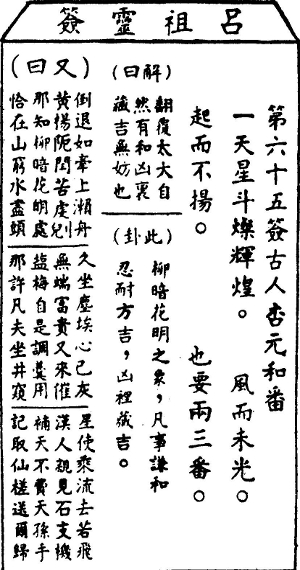 呂祖靈簽
第六十五簽古人杏元和番
一天星斗燦輝煌。 風而未光。
起而不揚。 也要兩三番。
(解曰)
翻覆太大自
然有和凶裏
藏吉無妨也
(此卦)
柳暗花明之象，凡事謙和
忍耐方吉，凶裡藏吉。
(又曰)
倒退如牽上瀨舟
黃楊阨閏苦虔
那知柳暗花明處
恰在山窮水盡頭
久坐塵埃心已灰
無端富貴又來催
鹽梅自是調羹用
那許凡夫坐井窺
星使乘流去若飛
漢人親見石支機
補天不費天孫手
記取仙槎送爾歸